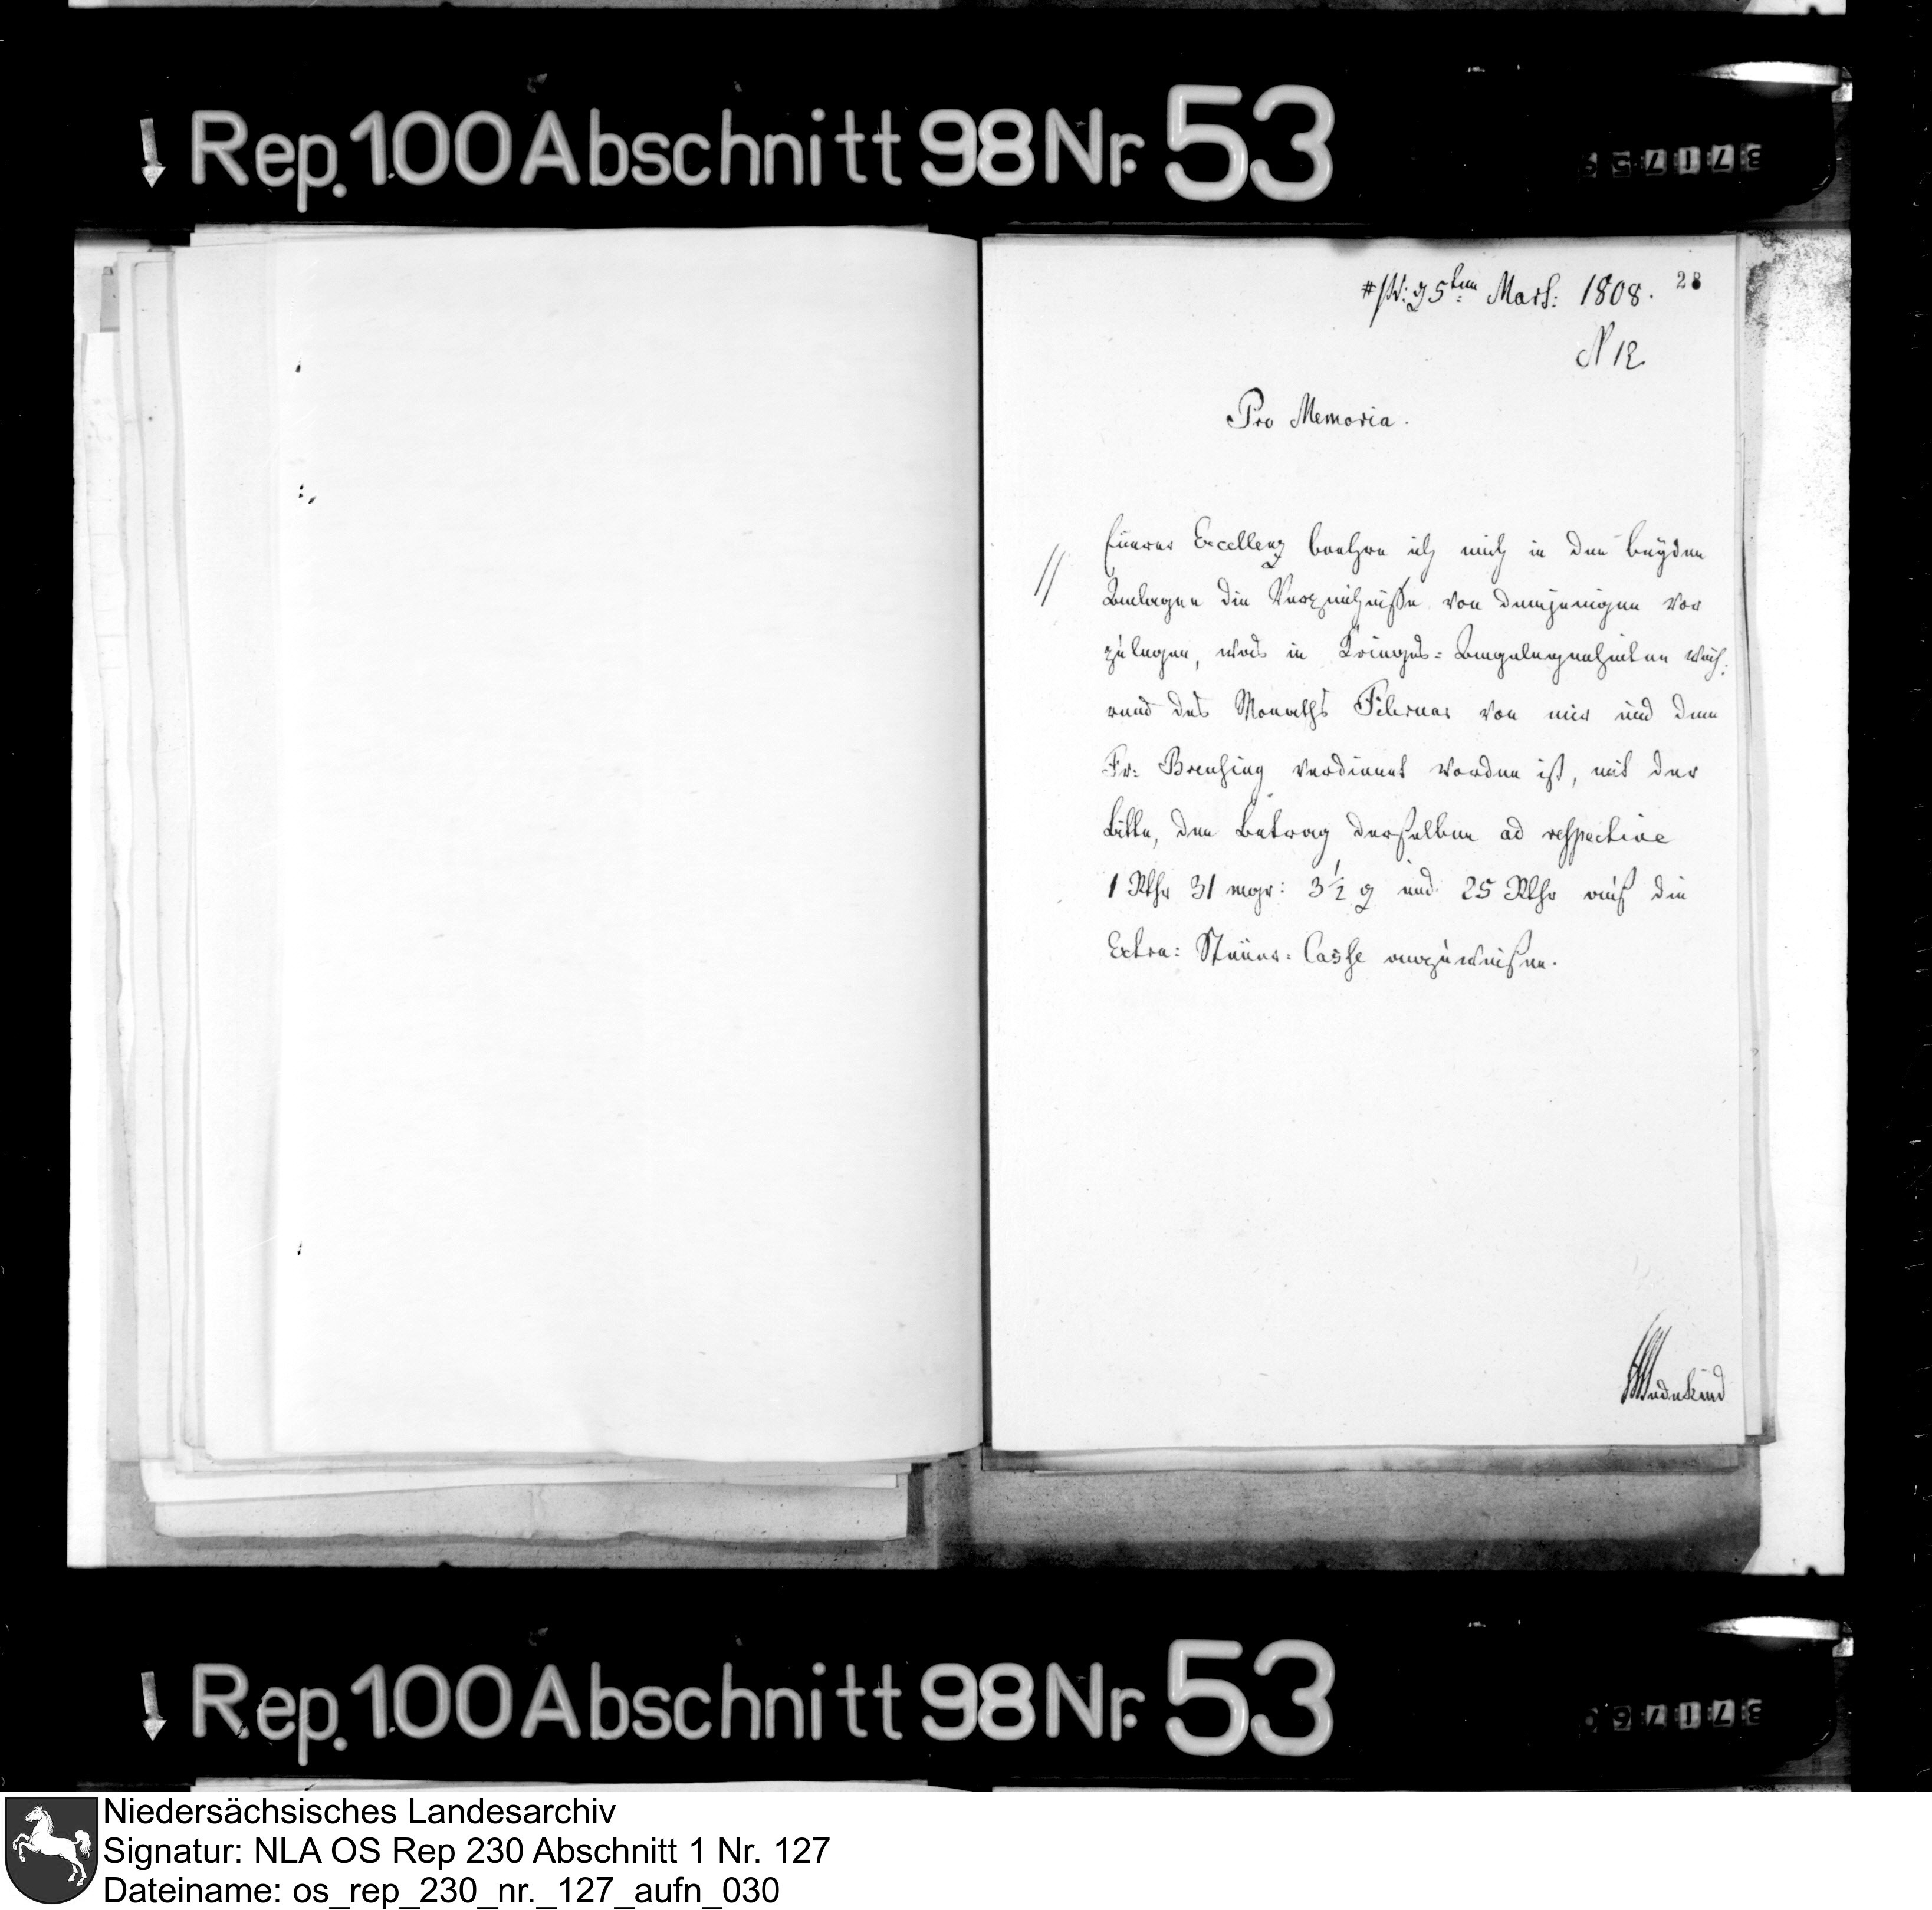 Rep. 100 Abschnitt 98 Nr. 53
5ten Mart: 1808. 28
N 12
Pro Memoria.
Euerer Excellenz beehre ich mich in den beyden
Anlagen die Verzeichnisse von demjenigen vor
zulegen, was in Krieges=Angelegenheiten wäh:
rend des Monaths Februar von mir und dem
Fr: Breusing verdienet worden ist, mit der
Bitte, den Betrag derselben ad respective
1 Rthr 31 mgr: 3½ ₰ und 25 Rthr auf die
Extra: Steuer: Casse anzuweisen.
Wedekind
Rep. 100 Abschnitt 98 Nr. 53
Niedersächsisches Landesarchiv
Signatur: NLA OS Rep 230 Abschnitt 1 Nr. 127
Dateiname: os_rep_230_nr._127_aufn_030